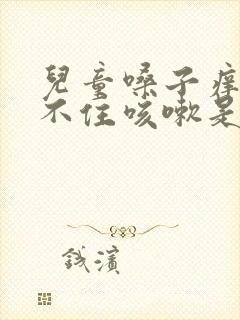 兒童嗓子癢
不住咳嗽是
錢濱